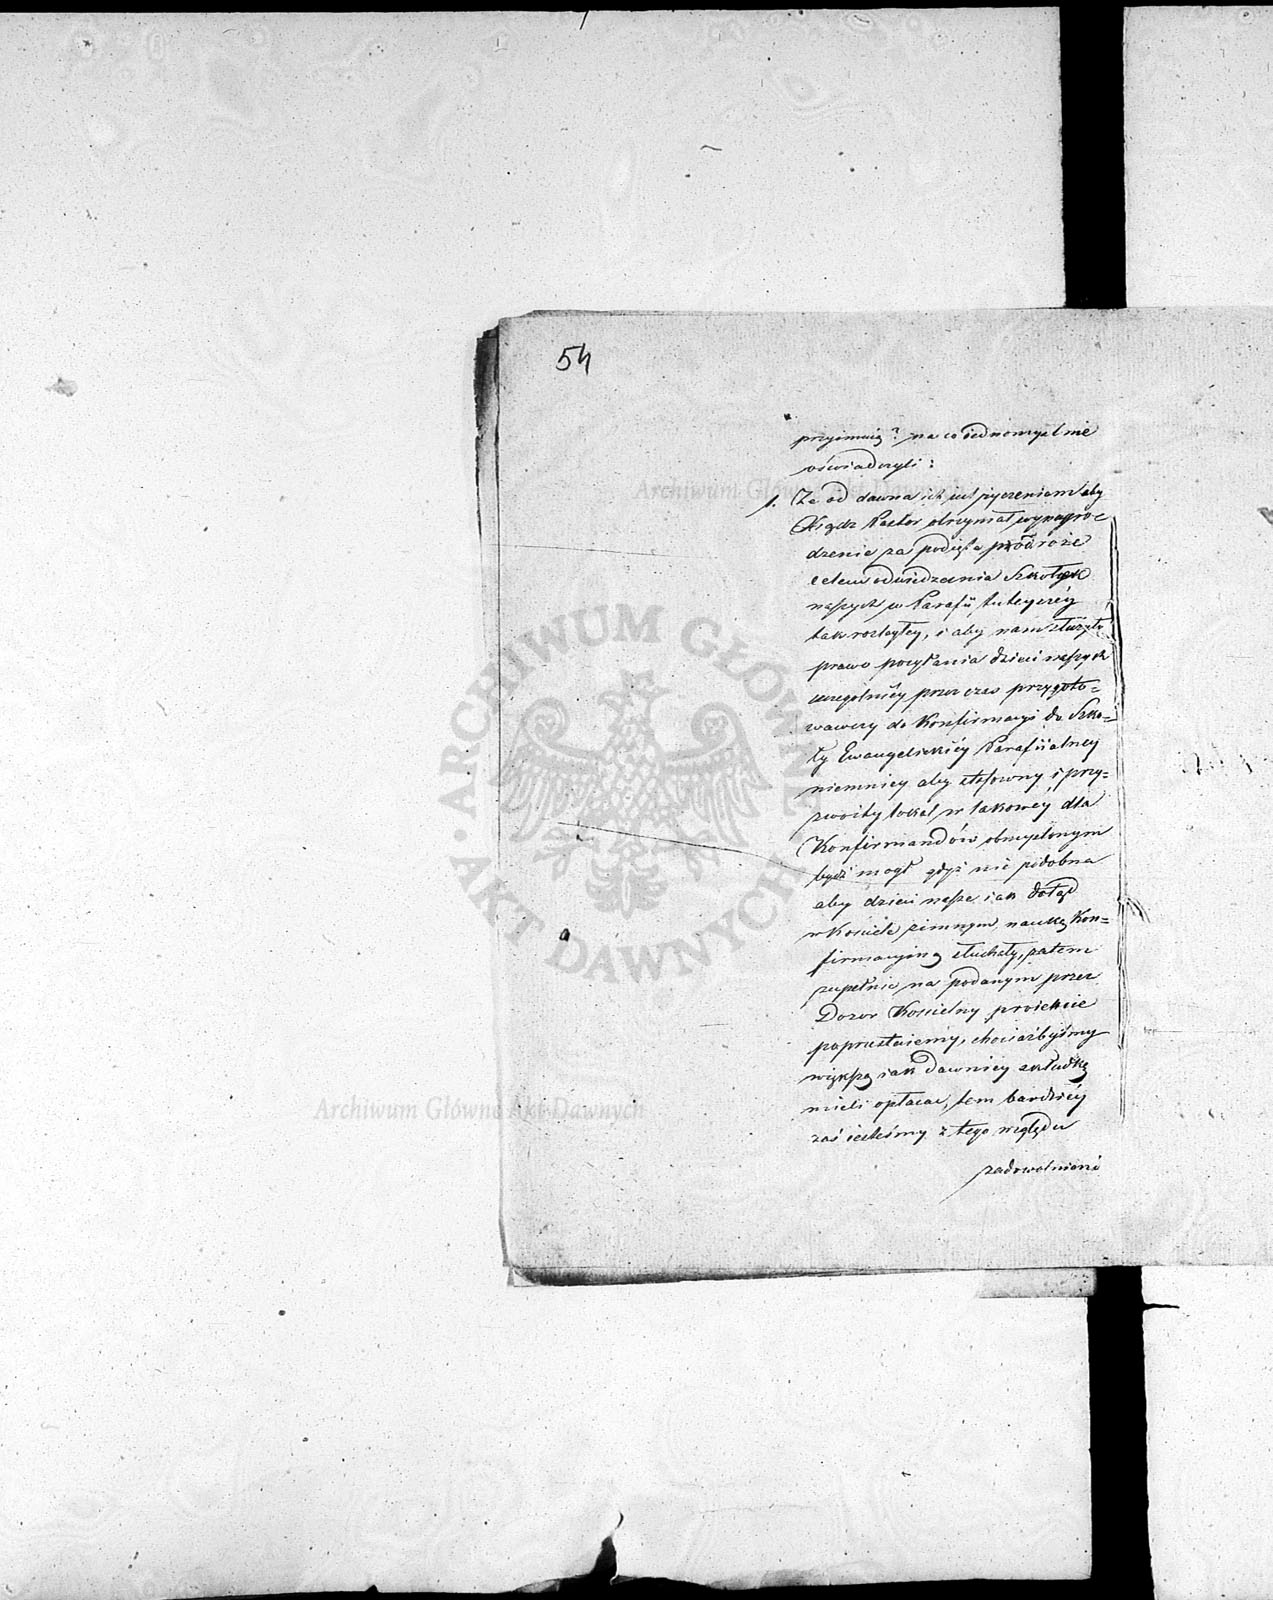 54
przyimuią? na co iednomyślnie
oświadczyli:
1. Że od dawna ich iest życzeniem aby
Xiądz Pastor otrzymał wynagro-
dzenie za podięte podróże
celem odwiedzenia Szkołek
naszych w Parafii tuteyszéy
tak rozległey, i aby nam służyło
prawo posyłania dzieci naszych
szczególniéy przez czas przygoto-
wawczy do Konfirmacyi do Szko-
ły Ewangelickiéy Parafiialney
niemniey aby stosowny i przy-
zwoity lokal w takowéy dla
Konfirmandów obmyślonym
bydź mogł gdyż nie podobna
aby dzieci nasze iak dotąd
w Kościele zimnym naukę Kon-
firmacyiną słuchały, zatem
zupełnie na podanym przez
Dozor Kościelny proiekcie
poprzestaiemy, chociażbyśmy
większą iak dawniey składkę
mieli opłacać, tem bardziéy
zaś iesteśmy z tego względu
zadowolnieni
ARCHIWUM GŁÓWNE AKT DAWNYCH
Archiwum Główne Akt Dawnych
Archiwum Główne Akt Dawnych